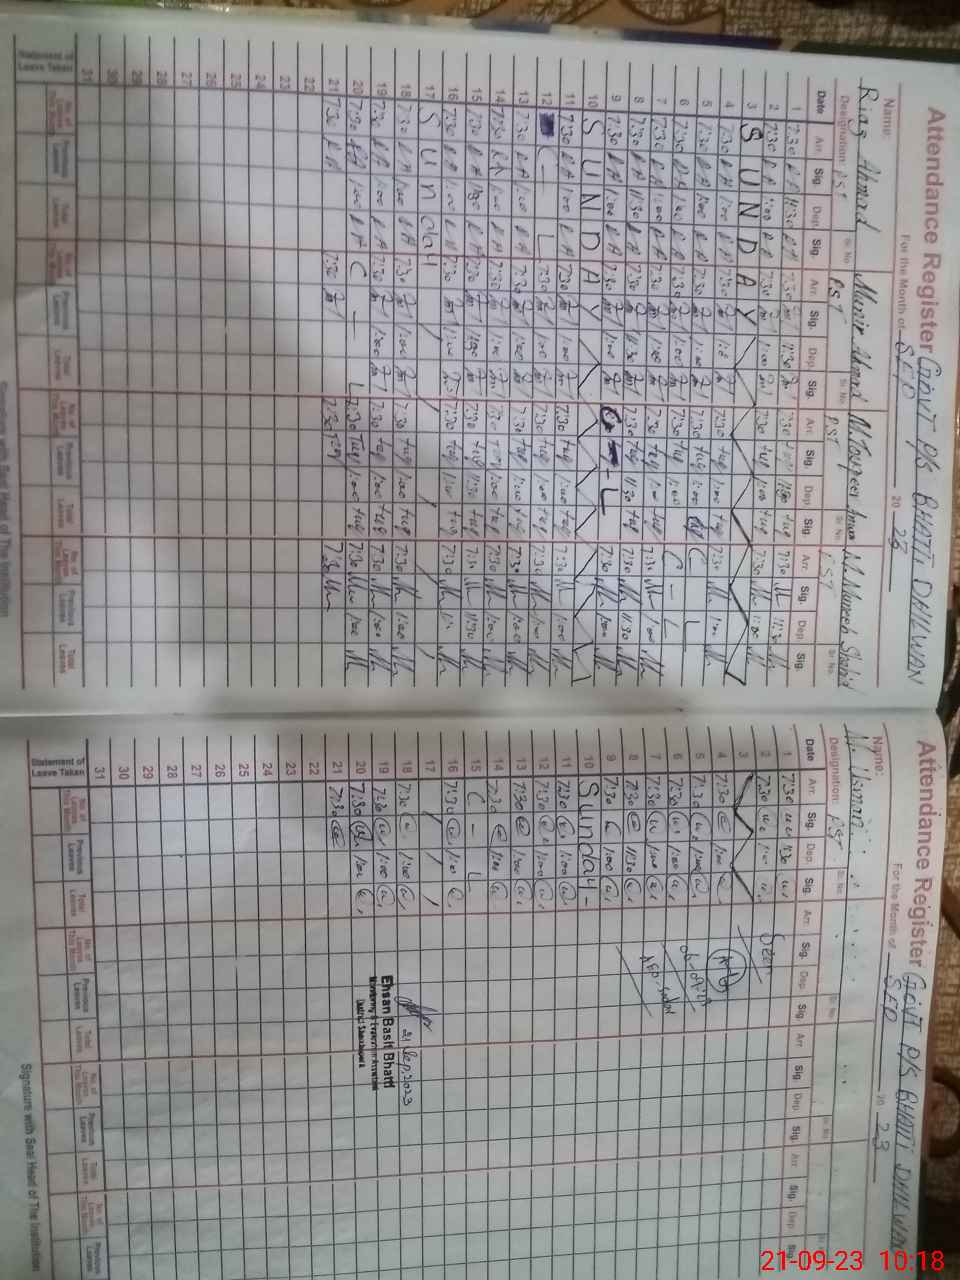 Attendance Register GOVT P/S BHATTI DHILWAN
For the Month of SEP 20 23
Name: Riaz Ahmad Munir Ahmad M. Tauqeer Anwar M. Muneeb Shahid
Designation: PST Sr. No PST Sr. No PST Sr. No PST Sr. No
Date Arr. Sig. Dep. Sig. Arr. Sig. Dep. Sig. Arr. Sig. Dep. Sig. Arr. Sig. Dep. Sig.
1 7:30 RA 11:30 RA 7:30 11:30 7:30 tuq 11:30 tuq 7:30 11:30
2 7:30 RA 1:00 RA 7:30 1:00 7:30 tuq 1:00 tuq 7:30 1:00
3 SUNDAY
4 7:30 RA 1:00 RA 7:30 7:30 tuq 1:00 tuq 7:30 1:00
5 7:30 RA 1:00 RA 7:30 1:00 7:30 tuq 1:00 tuq C - L
6 7:30 RA 1:00 RA 7:30 1:00 7:30 tuq 1:00 C - L
7 7:30 RA 1:00 RA 7:30 1:00 7:30 tuq 1:00 tuq 7:30 1:00
8 7:30 RA 11:30 RA 7:30 11:30 7:30 tuq 11:30 tuq 7:30 11:30
9 7:30 RA 1:00 RA 7:30 1:00 C - L 7:30 1:00
10 SUNDAY
11 7:30 RA 1:00 RA 7:30 1:00 7:30 tuq 1:00 tuq 7:30 1:00
12 C - L 7:30 1:00 7:30 tuq 1:00 tuq 7:30 1:00
13 7:30 RA 1:00 RA 7:30 1:00 7:30 tuq 1:00 tuq 7:30 1:00
14 7:30 RA 1:00 RA 7:30 1:00 7:30 tuq 1:00 tuq 7:30 1:00
15 7:30 RA 11:30 RA 7:30 11:30 7:30 tuq 11:30 tuq 7:30 11:30
16 7:30 RA 1:00 RA 7:30 1:00 7:30 tuq 1:00 tuq 7:30
17 Sunday
18 7:30 RA 1:00 RA 7:30 1:00 7:30 tuq 1:00 tuq 7:30 1:00
19 7:30 RA 1:00 RA 7:30 1:00 7:30 tuq 1:00 tuq 7:30 1:00
20 7:30 RA 1:00 RA C - L 7:30 tuq 1:00 tuq 7:30 1:00
21 7:30 RA 7:30 7:30 7:30
22
23
24
25
26
27
28
29
30
31
Statement of Leave Taken No. of Leaves This Month Previous Leaves Total Leaves No. of Leaves This Month Previous Leaves Total Leaves No. of Leaves This Month Previous Leaves Total Leaves No. of Leaves This Month Previous Leaves Total Leaves
Signature with Seal Head of The Institution
Attendance Register GOVT P/S BHATTI DHILWAN
For the Month of SEP 20 23
Name: M. Usman
Designation: PST Sr. No Sr. No Sr. No
Date Arr. Sig. Dep. Sig. Arr. Sig. Dep. Sig. Arr. Sig. Dep. Sig. Arr. Sig. Dep. Sig.
1 7:30 11:30
2 7:30 1:00 Seen
3
4 7:30 1:00
5 7:30 1:00
6 7:30 1:00
7 7:30 1:00
8 7:30 11:30
9 7:30 1:00
10 Sunday
11 7:30 1:00
12 7:30 1:00
13 7:30 1:00
14 7:30 1:00
15 C - L
16 7:30 1:00
17
18 7:30 1:00 21 Sep, 2023
19 7:30 1:00 Ehsan Basit Bhatti
Monitoring & Evaluation Assistant
20 7:30 1:00 District Sheikhupura
21 7:30
22
23
24
25
26
27
28
29
30
31
Statement of Leave Taken No. of Leaves This Month Previous Leaves Total Leaves No. of Leaves This Month Previous Leaves Total Leaves No. of Leaves This Month Previous Leaves Total Leaves No. of Leaves This Month Previous Leaves
Signature with Seal Head of The Institution
21-09-23 10:18